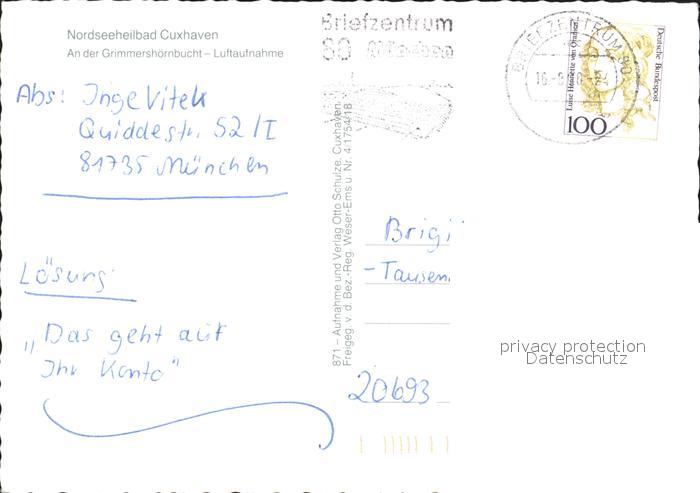 Nordseeheilbad Cuxhaven
An der Grimmershörnbucht – Luftaufnahme
Abs: Inge Vitek
Quiddestr. 52/I
81735 München
Lösung
„Das geht auf
Ihr Konto"
871 – Aufnahme und Verlag Otto Schulze, Cuxhaven,
Freigeg. v. d. Bez.-Reg. Weser-Ems u. Nr. 4/1754/18
Briefzentrum
80
BRIEFZENTRUM 80
Deutsche Bundespost
Luise Henriette von Oranien
100
Brigi
-Tausen
20693
privacy protection
Datenschutz